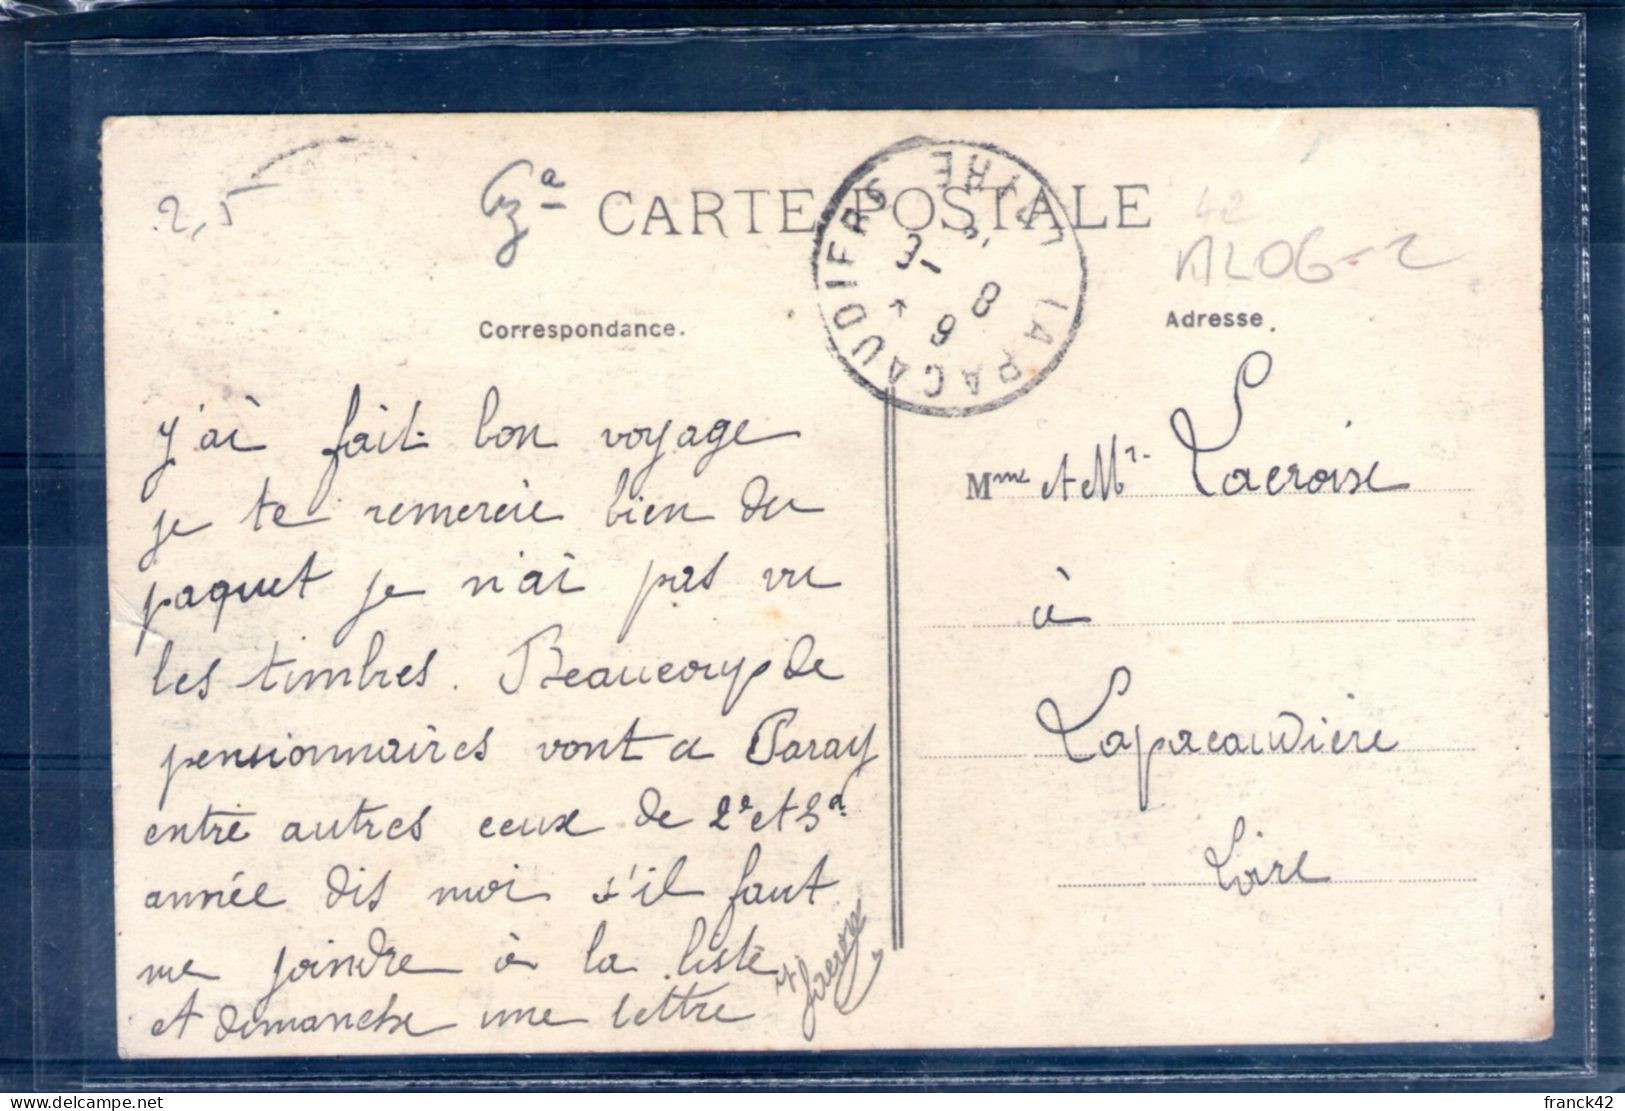 2,5
CARTE POSTALE
LAPACAUDIERE
LOIRE
8
42
Correspondance.
Adresse.
j'ai fait bon voyage
je te remercie bien du
paquet je n'ai pas vu
les timbres. Beaucoup de
pensionnaires vont a Paray
entre autres ceux de 2e et 3e
année dis moi s'il faut
me joindre à la liste
et dimanche une lettre
Mme et Mr. Lacroix
à
Lapacaudière
Loire
franck42